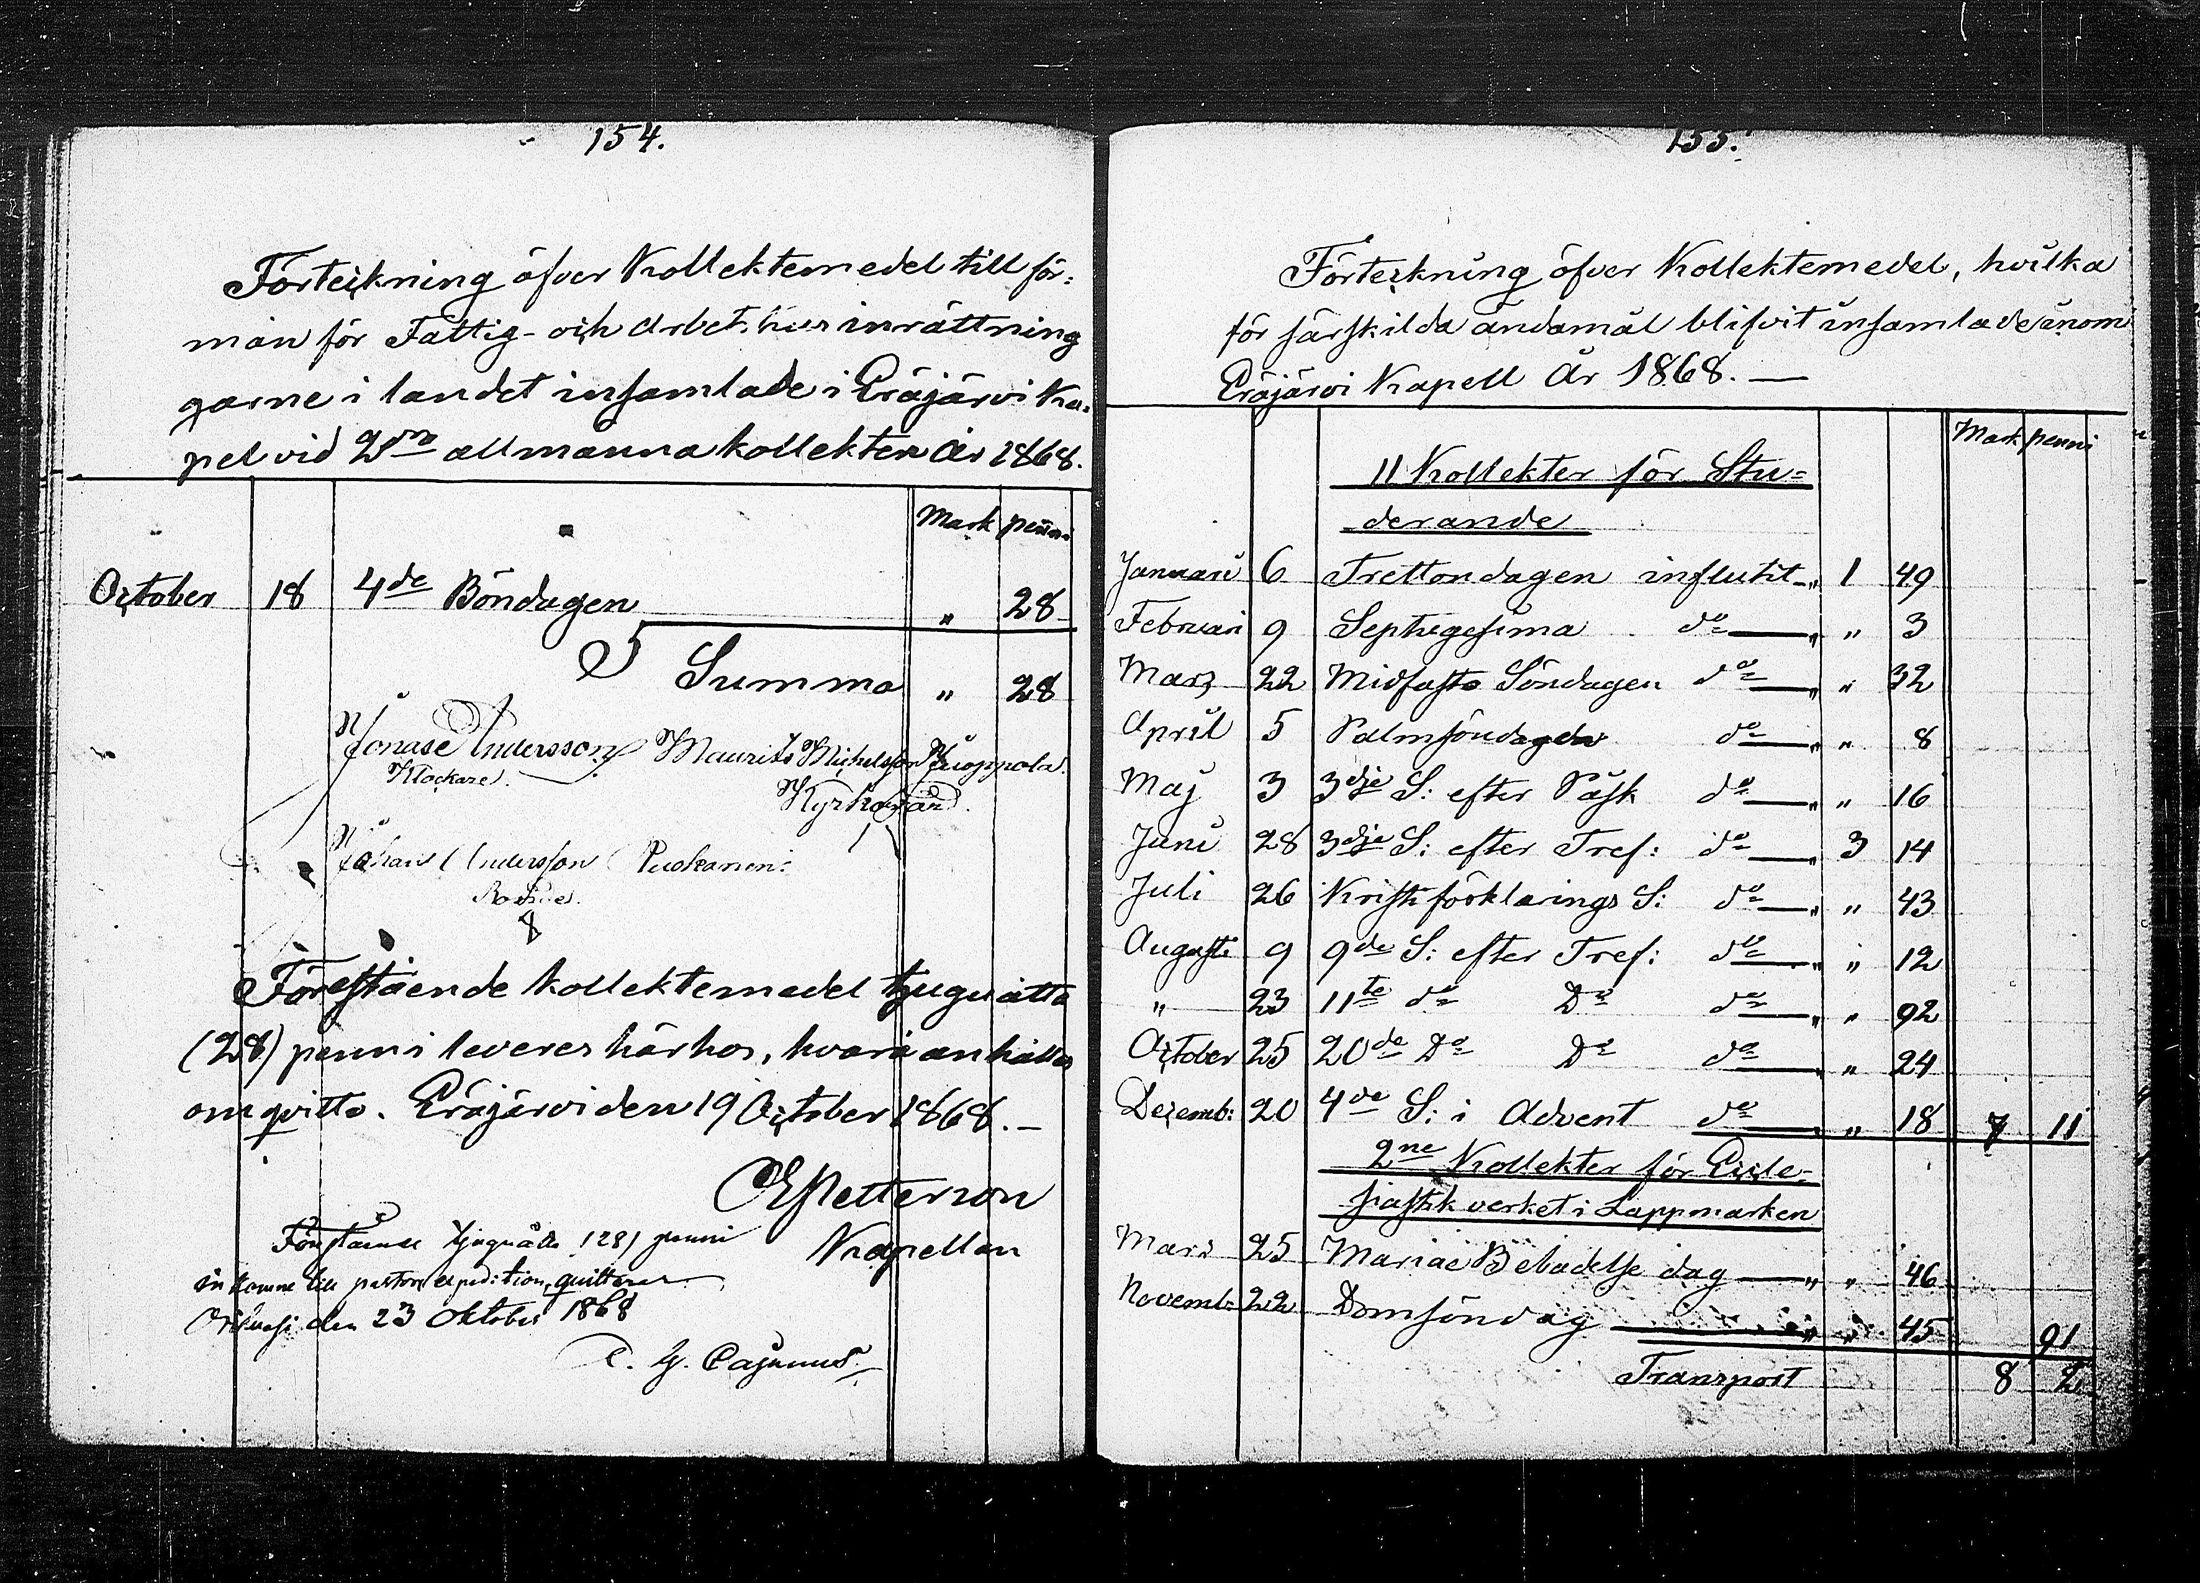 154.
Förteckning öfver Kollektemedel till för=
mån för Fattig- och Arbetshus inrättning
garne i landet insamlade i Eräjärvi Ka=
pel vid 2dra allmänna kollekten År 1868.
Mark penni
October 18 4de Böndagen " 28
Summa " 28
Jonase Andersson Maurits Michelsson Juoppola.
Klockare. Kyrkovärd.
Johan Andersson
Förestående kollektemedel tjuguåtta
(28) penni leveres härhos, hvarå anhålles
om qvitto. Eräjärvi den 19 October 1868.—
Petterson
Kapellan
Förestående tjuguåtta (28) penni
inkomne till pastors expedition, quitteras
Orihvesi den 23 Oktober 1868
C. G. Cajanus.
155.
Förteckning öfver Kollektemedel, hvilka
för särskilda ändamål blifvit insamlade inom
Eräjärvi Kapell År 1868.—
Mark penni
11 Kollekter för Stu=
derande
Januari 6 Trettondagen influtit " 1 49
Februari 9 Septugesima do " " 3
Mars 22 Midfasto Söndagen do " " 32
April 5 Palmsöndagen do " " 8
Maj 3 3dje S: efter Påsk do " " 16
Juni 28 3dje S: efter Tref: do " 3 14
Juli 26 Kristi förklarings S: do " " 43
Augusti 9 9de S: efter Tref: do " " 12
" 23 11te do Do do " " 92
October 25 20de Do Do do " " 24
Decemb: 20 4de S: i Advent do " " 18 7 11
2ne Kollekter för Eccle=
siastik verket i Lappmarken
Mars 25 Mariæ Bebådelse dag " " 46
Novemb: 22 Domsöndag " " 45 91
Transport 8 2